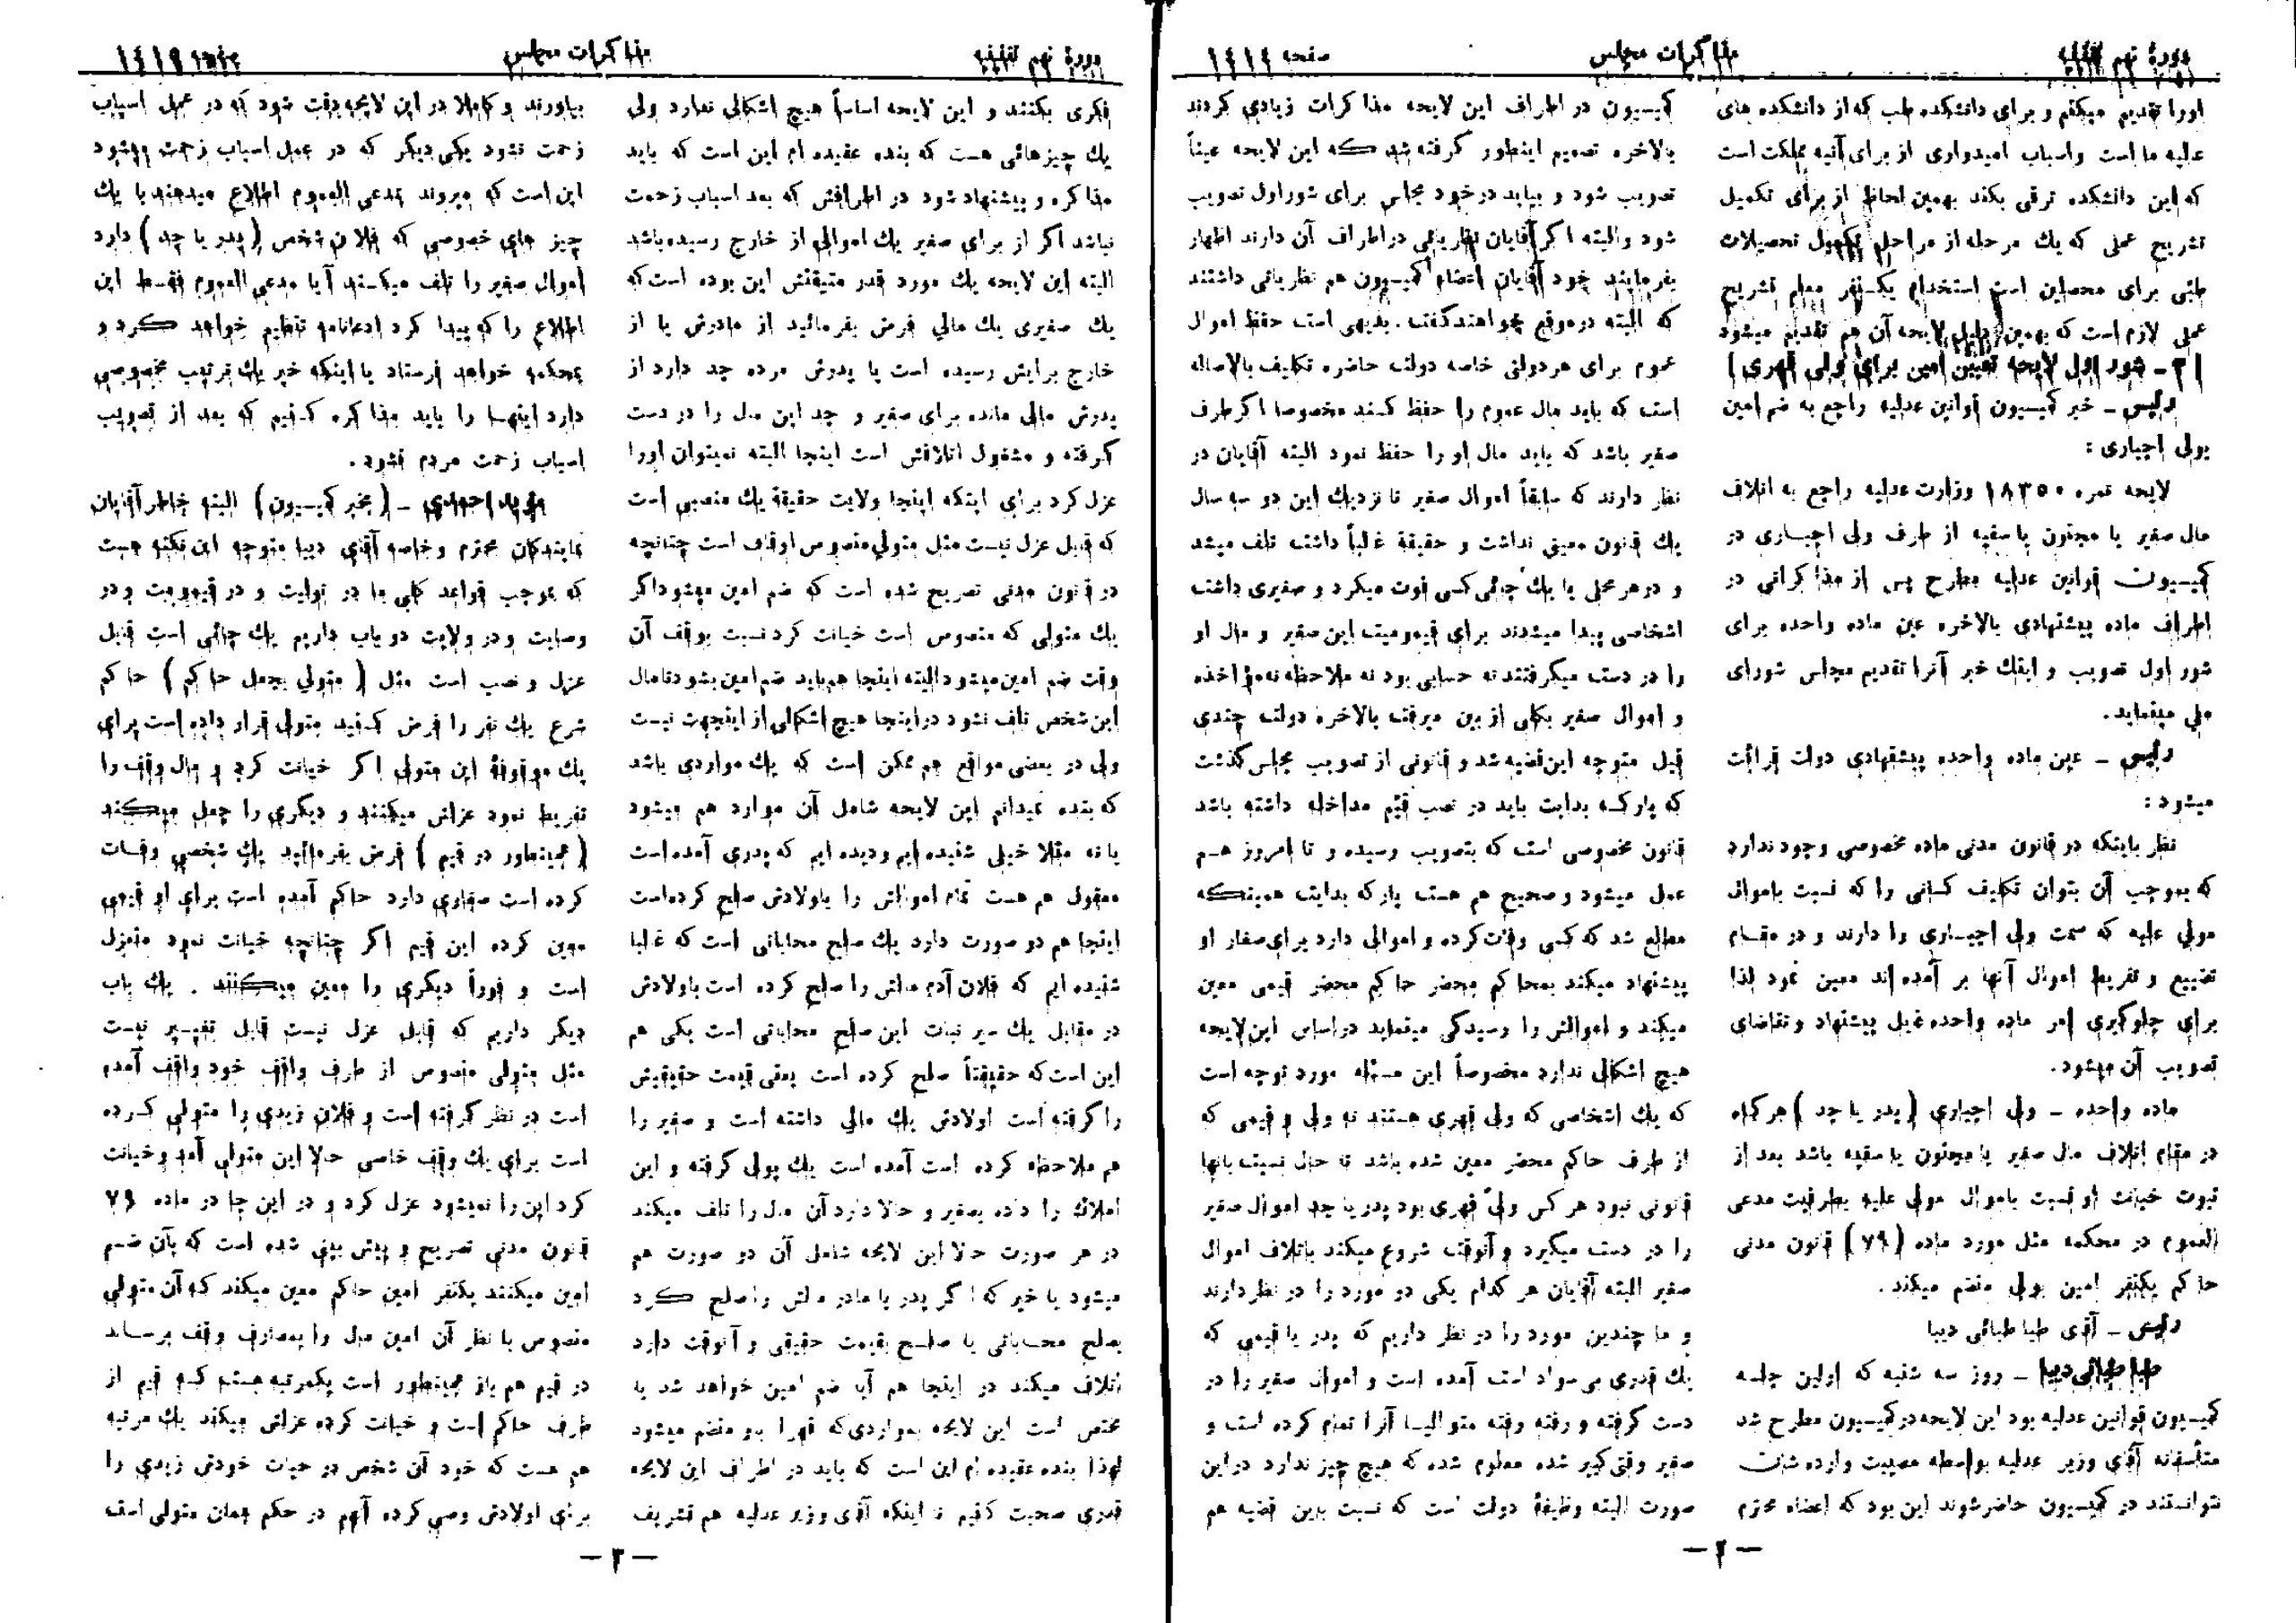 دورهٔ نهم تقنینیه
مذاکرات مجلس
صفحه ۱۴۱۴
اورا تقدیم میکنم و برای دانشکده طب که از دانشکده های
عالیه ما است واسباب امیدواری از برای آتیه مملکت است
که این دانشکده ترقی بکند بهمین لحاظ از برای تکمیل
تشریح عملی که یك مرحله از مراحل تکمیل تحصیلات
طبی برای محصلین است استخدام یکنفر معلم تشریح
عملی لازم است که بهمین دلیل لایحه آن هم تقدیم میشود
[۳ - شور اول لایحه تعیین امین برای ولی قهری]
رئیس - خبر کمیسیون قوانین عدلیه راجع به ضم امین
بولی اجباری :
لایحه نمره ۱۸۳۵۰ وزارت عدلیه راجع به اتلاف
مال صغیر یا مجنون یا سفیه از طرف ولی اجباری در
کمیسیون قوانین عدلیه مطرح پس از مذاکراتی در
اطراف ماده پیشنهادی بالاخره عین ماده واحده برای
شور اول تصویب و اینك خبر آنرا تقدیم مجلس شورای
ملی مینماید.
رئیس - عین ماده واحده پیشنهادی دولت قرائت
میشود :
نظر باینکه در قانون مدنی ماده مخصوصی وجود ندارد
که بموجب آن بتوان تکلیف کسانی را که نسبت باموال
مولی علیه که سمت ولی اجباری را دارند و در مقام
تضییع و تفریط اموال آنها بر آمده اند معین نمود لذا
برای جلوگیری امر ماده واحده ذیل پیشنهاد و تقاضای
تصویب آن میشود.
ماده واحده - ولی اجباری (پدر یا جد) هرگاه
در مقام اتلاف مال صغیر یا مجنون یا سفیه باشد بعد از
ثبوت خیانت او نسبت باموال مولی علیه بطرفیت مدعی
العموم در محکمه مثل مورد ماده (۷۹) قانون مدنی
حاکم یکنفر امین بولی منضم میکند.
رئیس - آقای طباطبائی دیبا
طباطبائی دیبا - روز سه شنبه که اولین جلسه
کمیسیون قوانین عدلیه بود این لایحه در کمیسیون مطرح شد
متأسفانه آقای وزیر عدلیه بواسطه مصیبت وارده شان
نتوانستند در کمیسیون حاضر شوند این بود که اعضاء محترم
کمیسیون در اطراف این لایحه مذاکرات زیادی کردند
بالاخره تصمیم اینطور گرفته شد که این لایحه عیناً
تصویب شود و بیاید در خود مجلس برای شور اول تصویب
شود والبته اگر آقایان نظریاتی در اطراف آن دارند اظهار
بفرمایند خود آقایان اعضاء کمیسیون هم نظریاتی داشتند
که البته در موقع خواهند گفت. بدیهی است حفظ اموال
عموم برای هر دولتی خاصه دولت حاضره تکلیف بالاصاله
است که باید مال عموم را حفظ کنند مخصوصا اگر طرف
صغیر باشد که باید مال او را حفظ نمود البته آقایان در
نظر دارند که سابقاً اموال صغیر تا نزدیك این دو سه سال
یك قانون معینی نداشت و حقیقة غالباً داشت تلف میشد
و در هر محلی یا یك جائی کسی فوت میکرد و صغیری داشت
اشخاصی پیدا میشدند برای قیمومیت این صغیر و مال او
را در دست میگرفتند نه حسابی بود نه ملاحظه نه مؤاخذه
و اموال صغیر بکلی از بین میرفت بالاخره دولت چندی
قبل متوجه این قضیه شد و قانونی از تصویب مجلس گذشت
که پارکه بدایت باید در نصب قیّم مداخله داشته باشد
قانون مخصوصی است که بتصویب رسیده و تا امروز هم
عمل میشود و صحیح هم هست پارکه بدایت همینکه
مطلع شد که کسی وفات کرده و اموالی دارد برای صغار او
پیشنهاد میکند بمحاکم محضر حاکم محضر قیمی معین
میکند و اموالش را رسیدگی مینماید در اساس این لایحه
هیچ اشکالی ندارد مخصوصاً این مسئله مورد توجه است
که یك اشخاصی که ولی قهری هستند نه ولی و قیمی که
از طرف حاکم محضر معین شده باشد تا حال نسبت بانها
قانونی نبود هر کس ولیّ قهری بود پدر یا جد اموال صغیر
را در دست میگیرد و آنوقت شروع میکند باتلاف اموال
صغیر البته آقایان هر کدام یکی دو مورد را در نظر دارند
و ما چندین مورد را در نظر داریم که پدر یا قیمی که
یك قدری بی سواد است آمده است و اموال صغیر را در
دست گرفته و رفته رفته متوالیا آنرا تمام کرده است و
صغیر وقتی کبیر شده معلوم شده که هیچ چیز ندارد در این
صورت البته وظیفهٔ دولت است که نسبت بدین قضیه هم
— ۲ —
دورهٔ نهم تقنینیه
مذاکرات مجلس
صفحه ۱۴۱۵
فکری بکنند و این لایحه اساساً هیچ اشکالی ندارد ولی
یك چیزهائی هست که بنده عقیده ام این است که باید
مذاکره و پیشنهاد شود در اطرافش که بعد اسباب زحمت
نباشد اگر از برای صغیر یك اموالی از خارج رسیده باشد
البته این لایحه یك مورد قدر متیقنش این بوده است که
یك صغیری یك مالی فرض بفرمائید از مادرش یا از
خارج برایش رسیده است یا پدرش مرده جد دارد از
پدرش مالی مانده برای صغیر و جد این مال را در دست
گرفته و مشغول اتلافش است اینجا البته نمیتوان اورا
عزل کرد برای اینکه اینجا ولایت حقیقة یك منصبی است
که قابل عزل نیست مثل متولی منصوص اوقاف است چنانچه
در قانون مدنی تصریح شده است که ضم امین میشود اگر
یك متولی که منصوص است خیانت کرد نسبت بوقف آن
وقت ضم امین میشود البته اینجا هم باید ضم امین بشود تا مال
این شخص تلف نشود در اینجا هیچ اشکالی از اینجهت نیست
ولی در بعضی مواقع هم ممکن است که یك مواردی باشد
که بنده نمیدانم این لایحه شامل آن موارد هم میشود
یا نه مثلا خیلی شنیده ایم و دیده ایم که پدری آمده است
معقول هم هست تمام اموالش را باولادش صلح کرده است
اینجا هم دو صورت دارد یك صلح محاباتی است که غالبا
شنیده ایم که فلان آدم مالش را صلح کرده است باولادش
در مقابل یك سیر نبات این صلح محاباتی است یکی هم
این است که حقیقتاً صلح کرده است یعنی قیمت حقیقیش
را گرفته است اولادش یك مالی داشته است و صغیر را
هم ملاحظه کرده است آمده است یك پولی گرفته و این
املاك را داده بصغیر و حالا دارد آن مال را تلف میکند
در هر صورت حالا این لایحه شامل آن دو صورت هم
میشود یا خیر که اگر پدر یا مادر مالش را صلح کرد
بصلح محاباتی یا صلح بقیمت حقیقی و آنوقت دارد
اتلاف میکند در اینجا هم آیا ضم امین خواهد شد یا
مختص است این لایحه بمواردی که قهرا باو منضم میشود
لهذا بنده عقیده ام این است که باید در اطراف این لایحه
قدری صحبت کنیم تا اینکه آقای وزیر عدلیه هم تشریف
بیاورند و کاملا در این لایحه دقت شود که در عمل اسباب
زحمت نشود یکی دیگر که در عمل اسباب زحمت میشود
این است که میروند بمدعی العموم اطلاع میدهند با یك
چیز های خصوصی که فلان شخص (پدر یا جد) دارد
اموال صغیر را تلف میکند آیا مدعی العموم فقط این
اطلاع را که پیدا کرد ادعانامه تنظیم خواهد کرد و
بمحکمه خواهد فرستاد یا اینکه خیر یك ترتیب مخصوصی
دارد اینها را باید مذاکره کنیم که بعد از تصویب
اسباب زحمت مردم نشود.
مؤید احمدی - (مخبر کمیسیون) البته خاطر آقایان
نمایندگان محترم و خاصه آقای دیبا متوجه این نکته هست
که بموجب قواعد کلی ما در تولیت و در قیمومیت و در
وصایت و در ولایت دو باب داریم یك جائی است قابل
عزل و نصب است مثل (متولی بجعل حاکم) حاکم
شرع یك نفر را فرض کنید متولی قرار داده است برای
یك موقوفهٔ این متولی اگر خیانت کرد و مال وقف را
تفریط نمود عزلش میکنند و دیگری را جعل میکند
(همینطور در قیم) فرض بفرمائید یك شخصی وفات
کرده است صغاری دارد حاکم آمده است برای او قیمی
معین کرده این قیم اگر چنانچه خیانت نمود منعزل
است و فوراً دیگری را معین میکنند . یك باب
دیگر داریم که قابل عزل نیست قابل تغییر نیست
مثل متولی منصوص از طرف واقف خود واقف آمده
است در نظر گرفته است و فلان زیدی را متولی کرده
است برای یك وقف خاصی حالا این متولی آمد و خیانت
کرد این را نمیشود عزل کرد و در این جا در ماده ۷۹
قانون مدنی تصریح و پیش بینی شده است که بآن ضم
امین میکنند یکنفر امین حاکم معین میکند که آن متولی
منصوص با نظر آن امین مال را بمصارف وقف برساند
در قیم هم باز همینطور است یکمرتبه هستم که قیم از
طرف حاکم است و خیانت کرده عزلش میکند یك مرتبه
هم هست که خود آن شخص در حیات خودش زیدی را
برای اولادش وصی کرده آنهم در حکم همان متولی است
— ۳ —